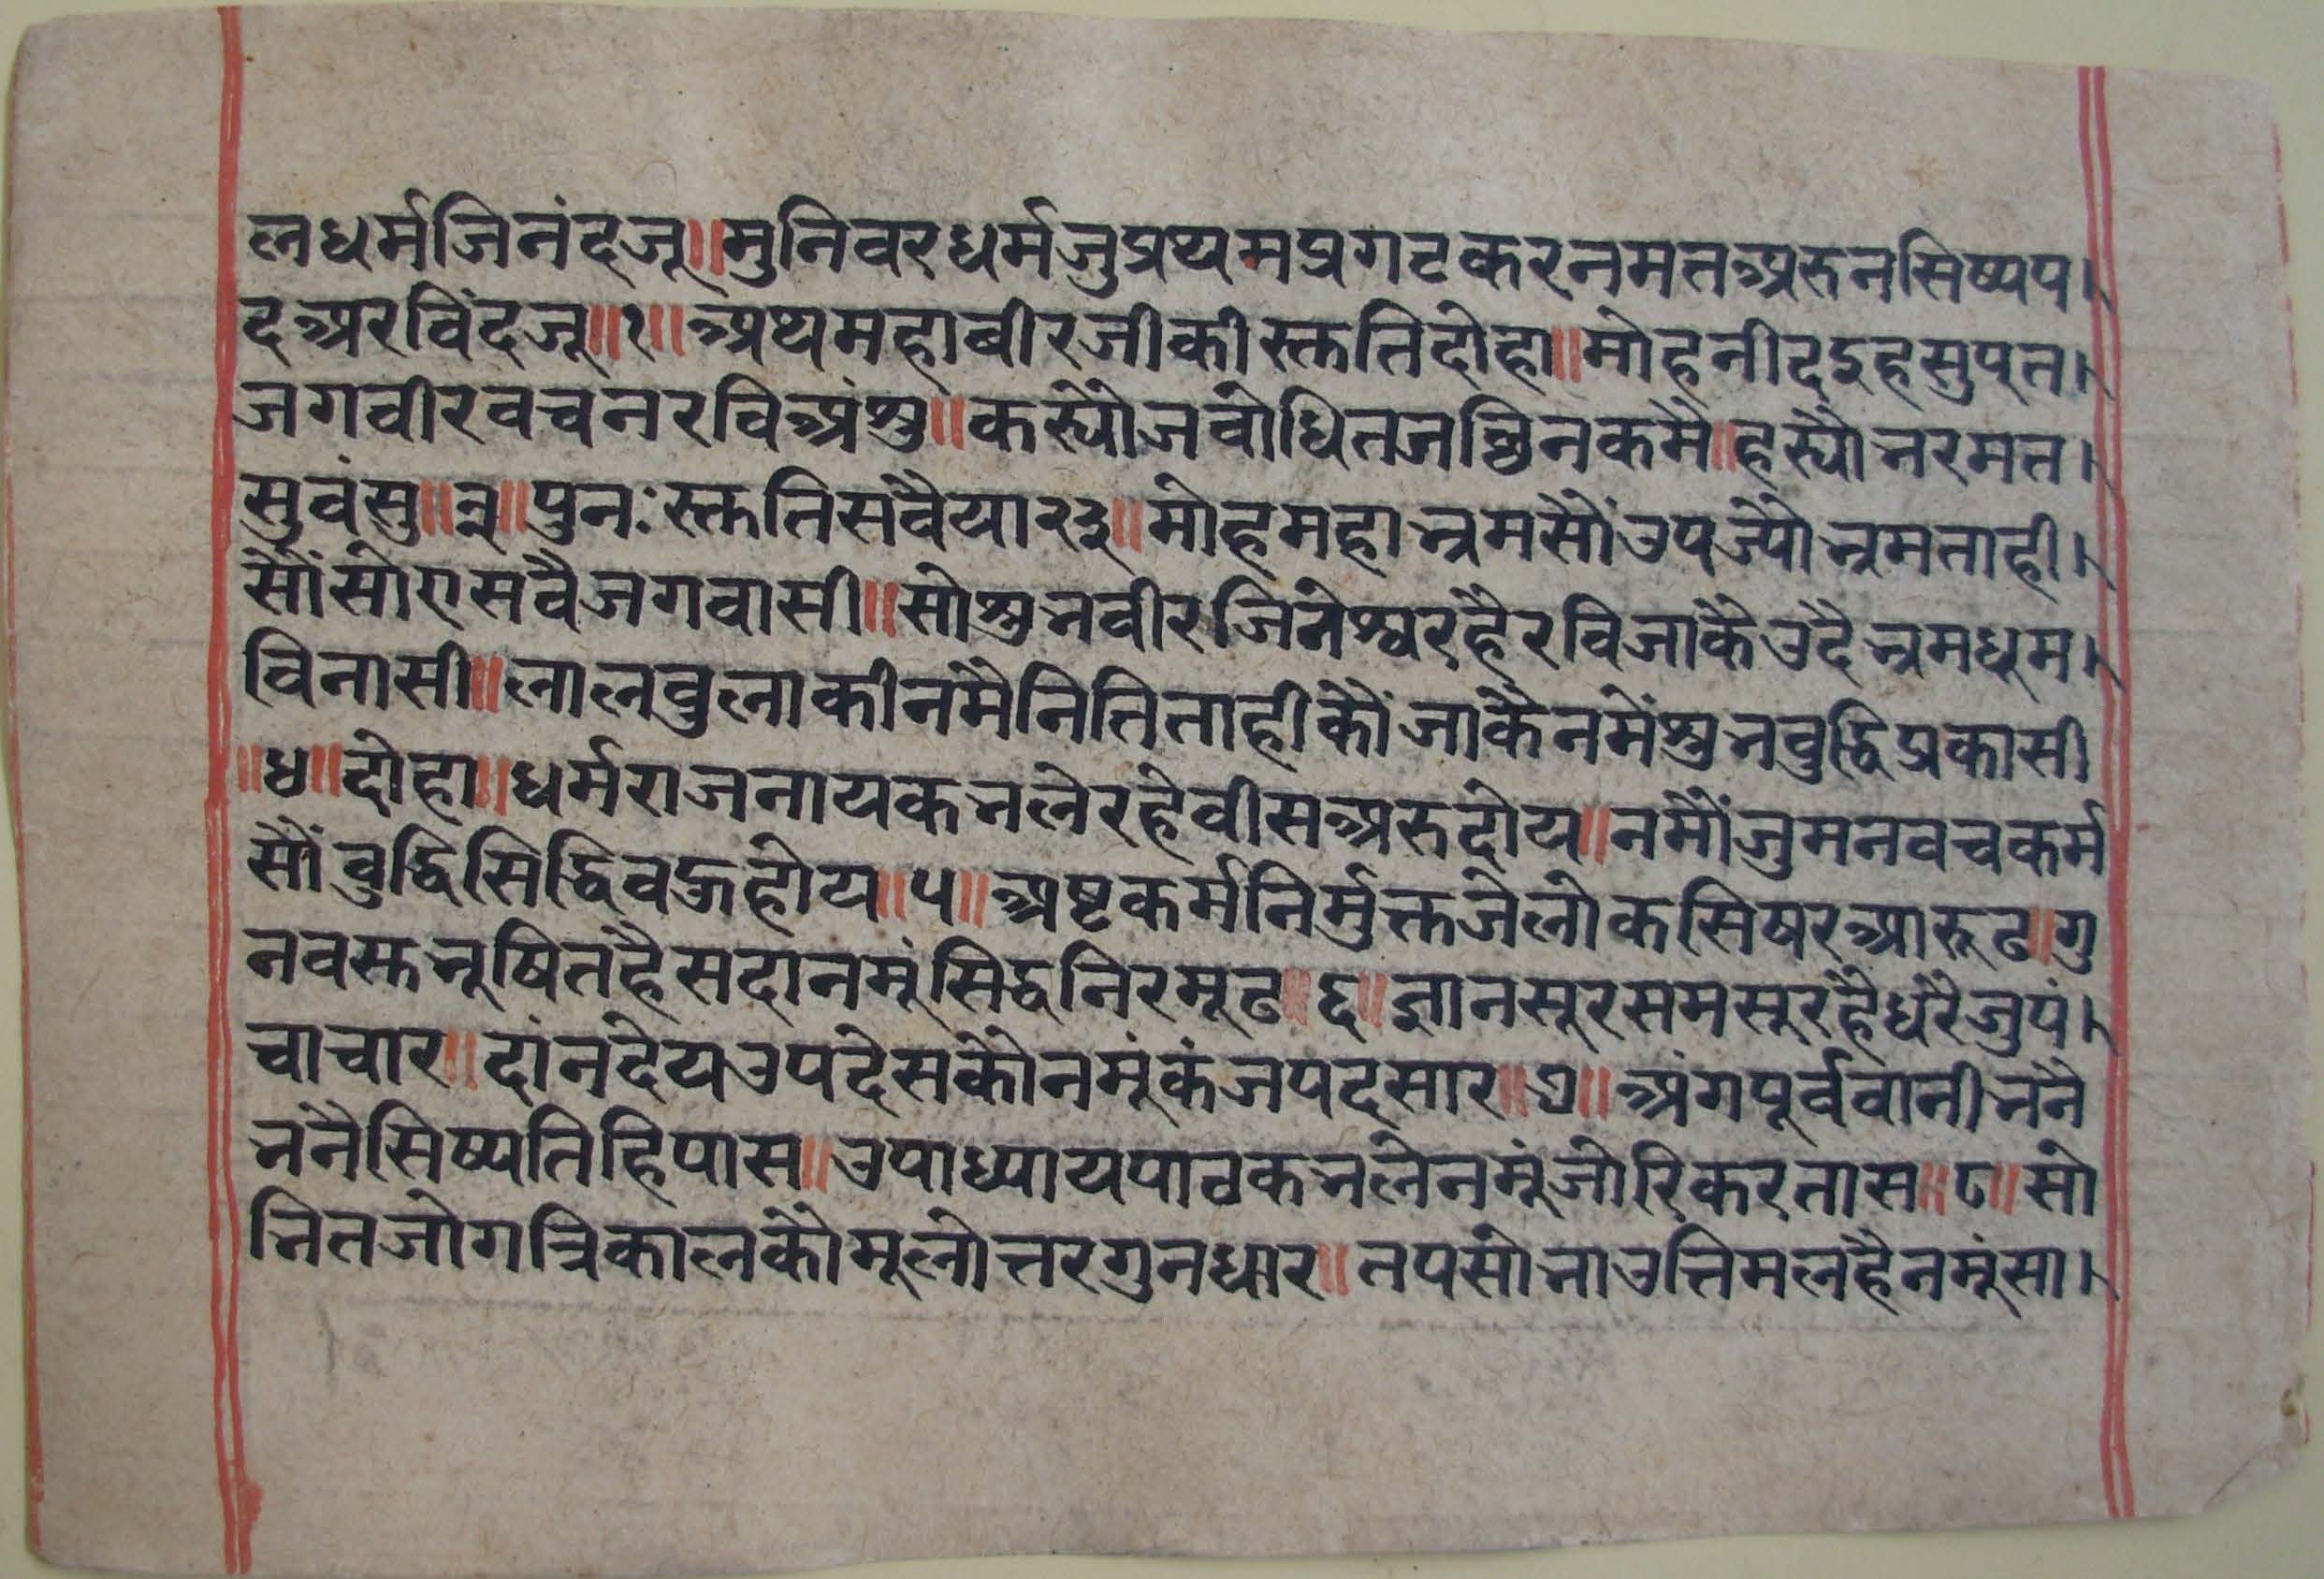 लधर्मजिनंदजू॥मुनिवरधर्मजुप्रथमप्रगटकरनमतअरुनसिष्यप।
दअरविंदजू॥१॥अथमहाबीरजीकीस्तुतिदोहा॥मोहनीदइहसुपुत।
जगवीरवचनरविअंशु॥कस्यौजवोधितजग्गिनकमै॥हस्यौनरमत।
सुवंसु॥३॥पुनःस्तुतिसवैया२३॥मोहमहाभ्रमसौंउपज्यौभ्रमताही।
सौंसोएसवैजगवासी॥सोशुभवीरजिनेश्वरहैरविजाकैउदैभ्रमधूम।
विनासी॥लालवुलाकीनमैनितिताहीकौंजाकैनमेंशुभवुद्धिप्रकासी
॥४॥दोहा॥धर्मराजनायकभलेरहेवीसअरुदोय॥नमौंजुमनवचकर्म
सौंवुद्धिसिद्धिवहुहोय॥५॥अष्टकर्मनिर्मुक्तजेलोकसिषरआरूढ॥गु
नवस्तभूषितहैसदानमुंसिद्धनिरमूढ॥६॥ज्ञानसूरसमसूरहैधरैजुपं।
चाचार॥दांनदेयउपदेसकौनमुंकंजपदसार॥७॥अंगपूर्ववानीभनै
भनैसिष्यतिहिपास॥उपाध्यायपाठकभलेनमुंजोरिकरतास॥८॥सो
भितजोगत्रिकालकौमूलोत्तरगुनधार॥तपसोभाउत्तिमलहैनमुंसा।